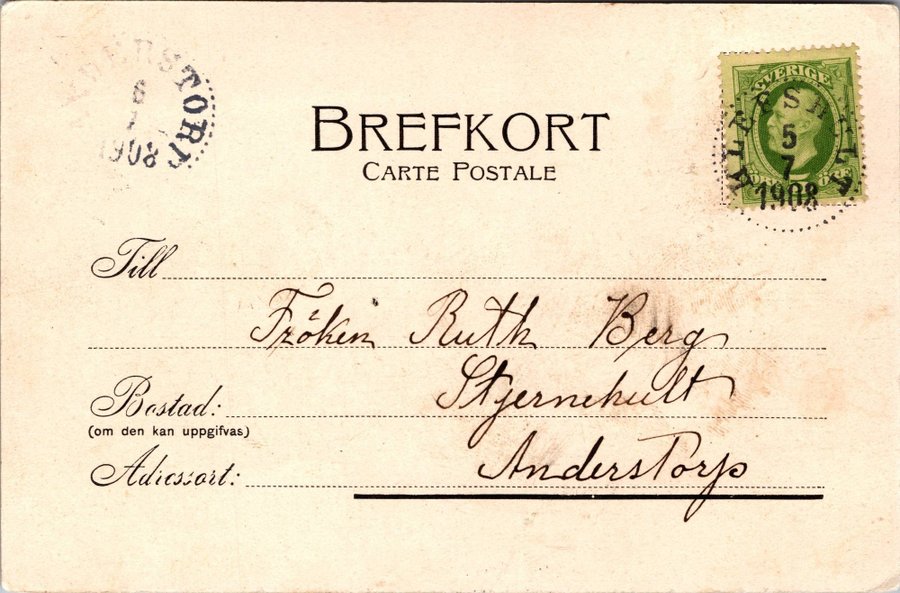 6
7
1908
BREFKORT
CARTE POSTALE
SVERIGE
5
7
1908
Till
Fröken Ruth Berg
Stjernehult
Bostad:
(om den kan uppgifvas)
Adressort:
Anderstorp